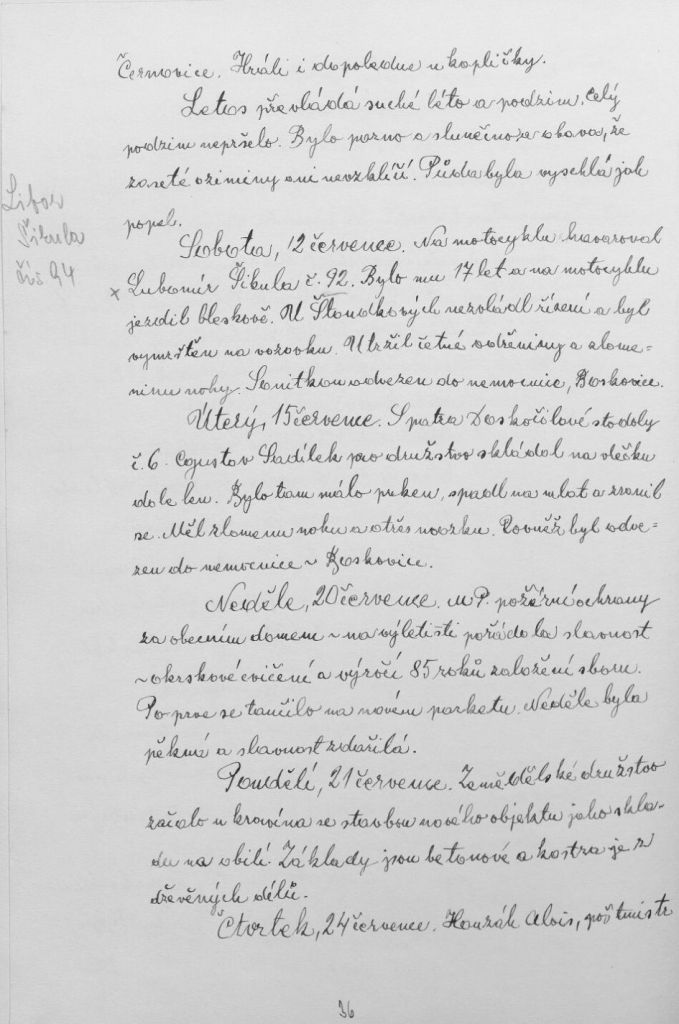 Černovice. Hráli i dopoledne u kapličky.
Letos převládá suché léto a podzim. Celý
podzim nepršelo. Bylo parno a slunečno, obava, že
zaseté oziminy ani nevzklíčí. Půda byla vyschlá jak
popel.
Libor
Šikula
čís 94
Sobota, 12 července. Na motocyklu havaroval
x Lubomír Šikula č. 92. Bylo mu 17 let a na motocyklu
jezdil bleskově. U nezvládl řízení a byl
vymrštěn na vozovku. Utržil četné odřeniny a zlome-
ninu nohy. Sanitkou odvezen do nemocnice, Boskovice.
Úterý, 15 července. S patra Doskočilové stodoly
č. 6. Sadílek pro družstvo skládal na vlečku
dole len. Bylo tam málo puken, spadl na mlat a zranil
se. Měl zlomenu ruku a otřes mozku. Rovněž byl odve-
zen do nemocnice v Boskovice.
Neděle, 20 července. M P. požární ochrany
za obecním domem v na výletišti pořádala slavnost
v okrskové cvičení a výročí 85 roků založení sboru.
Po prve se tančilo na novém parketu. Neděle byla
pěkná a slavnost zdařilá.
Pondělí, 21 července. Zemědělské družstvo
začalo u kravína se stavbou nového objektu jako skla-
du na obilí. Základy jsou betonové a kostra je z
dřevěných dílů.
Čtvrtek, 24 července. Honzák Alois, poštmistr
36